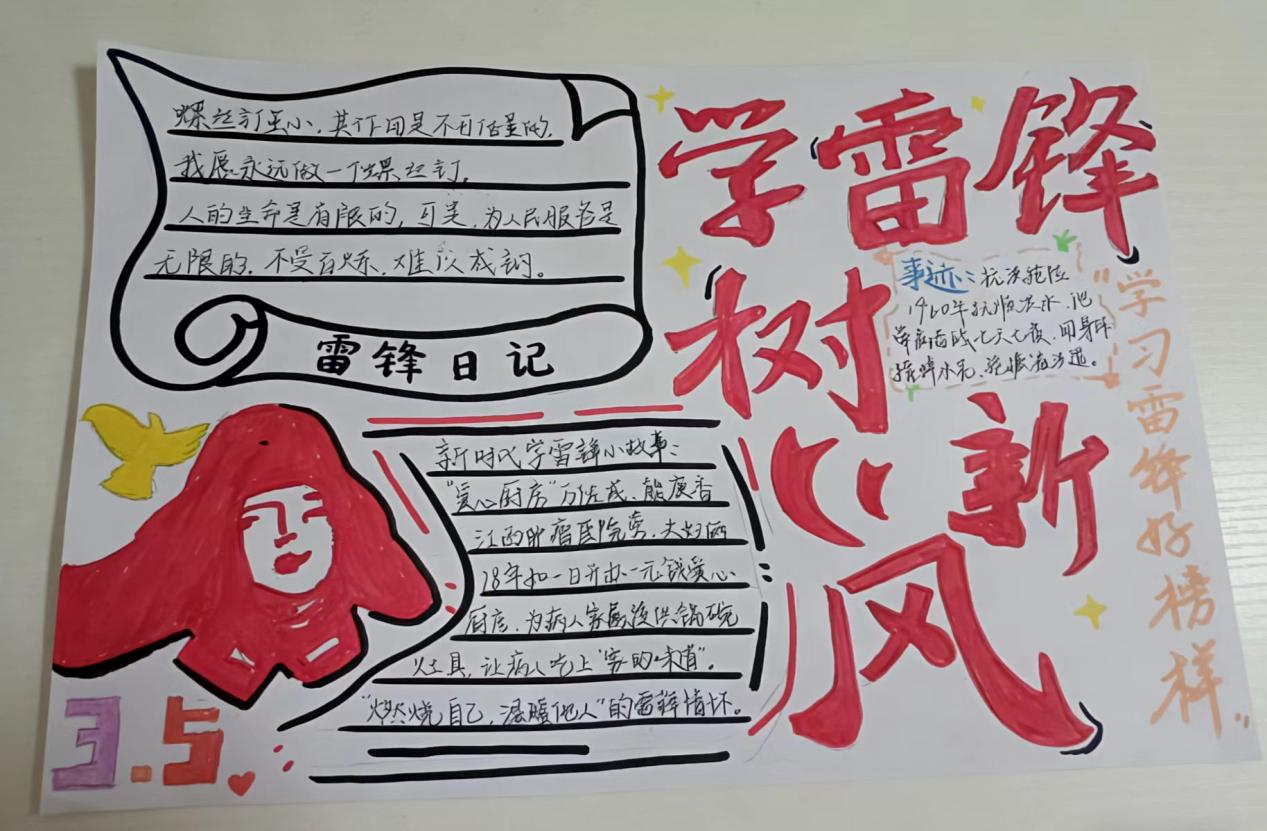 螺丝钉虽小，其作用是不可估量的，
我愿永远做一个螺丝钉。
人的生命是有限的，可是，为人民服务是
无限的，不受百炼，难以成钢。
雷锋日记
学雷锋
树心新风
事迹：抗洪抢险
1960年抚顺洪水，他
带病奋战七天七夜，用身体
"学习雷锋好榜样"
新时代学雷锋小故事：
"爱心厨房"万佐成、熊庚香
江西肿瘤医院旁，夫妇俩
18年如一日开办一元钱爱心
厨房，为病人家属提供锅碗
灶具，让病人吃上"家的味道"。
"燃烧自己，温暖他人"的雷锋情怀。
3.5